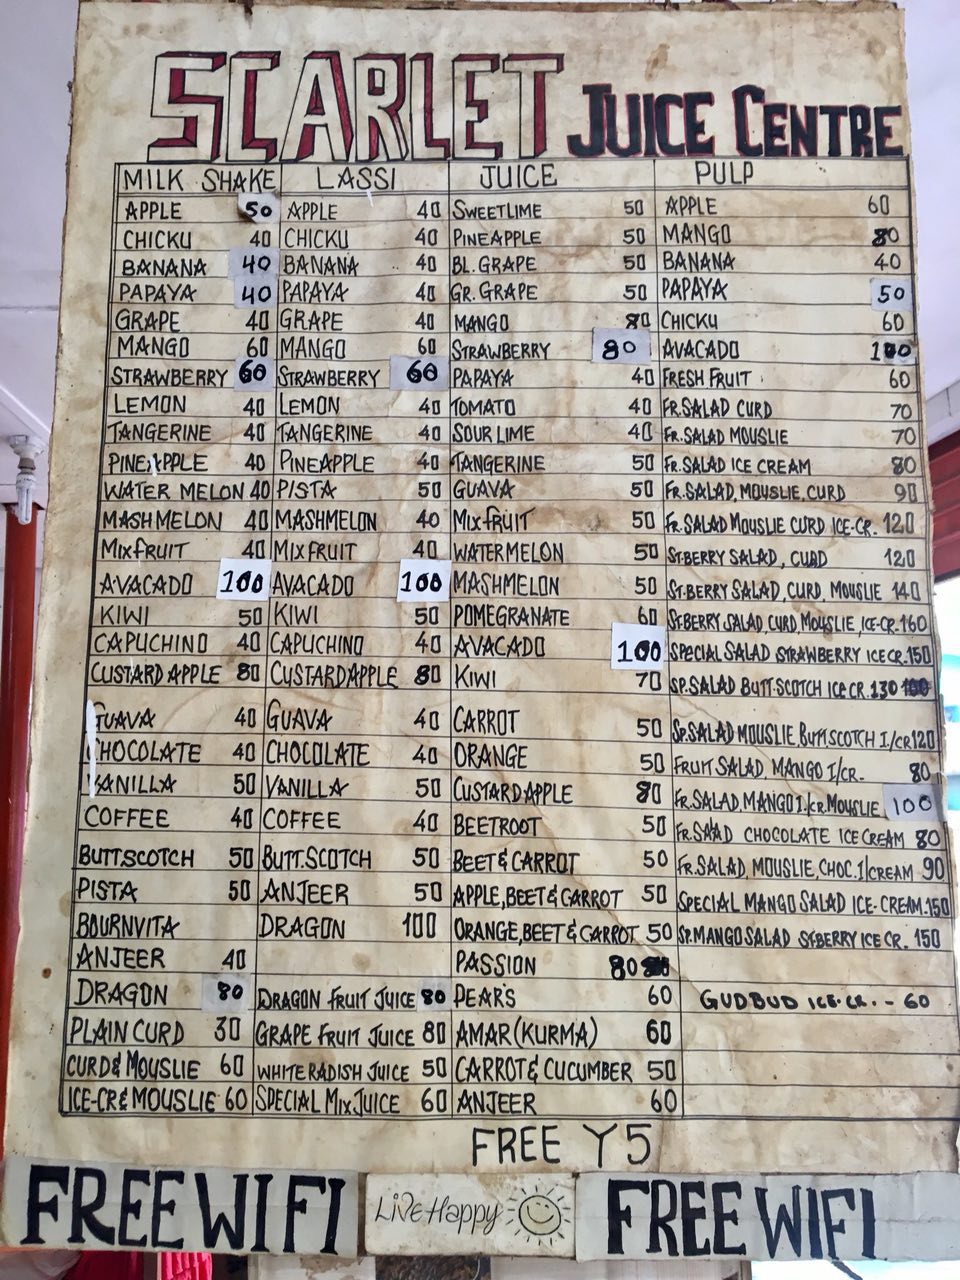 SCARLET JUICE CENTRE
MILK SHAKE LASSI JUICE PULP
APPLE 50 APPLE 40 SWEETLIME 50 APPLE 60
CHICKU 40 CHICKU 40 PINEAPPLE 50 MANGO 80
BANANA 40 BANANA 40 BL. GRAPE 50 BANANA 40
PAPAYA 40 PAPAYA 40 GR. GRAPE 50 PAPAYA 50
GRAPE 40 GRAPE 40 MANGO 80 CHICKU 60
MANGO 60 MANGO 60 STRAWBERRY 80 AVACADO 100
STRAWBERRY 60 STRAWBERRY 60 PAPAYA 40 FRESH FRUIT 60
LEMON 40 LEMON 40 TOMATO 40 FR.SALAD CURD 70
TANGERINE 40 TANGERINE 40 SOUR LIME 40 FR.SALAD MOUSLIE 70
PINEAPPLE 40 PINEAPPLE 40 TANGERINE 50 FR.SALAD ICE CREAM 80
WATER MELON 40 PISTA 50 GUAVA 50 FR.SALAD, MOUSLIE, CURD 90
MASHMELON 40 MASHMELON 40 MIX FRUIT 50 FR.SALAD MOUSLIE CURD ICE-CR. 120
MIX FRUIT 40 MIX FRUIT 40 WATERMELON 50 ST.BERRY SALAD, CURD 120
AVACADO 100 AVACADO 100 MASHMELON 50 ST.BERRY SALAD, CURD, MOUSLIE 140
KIWI 50 KIWI 50 POMEGRANATE 60 ST.BERRY SALAD, CURD, MOUSLIE, ICE-CR. 160
CAPUCHINO 40 CAPUCHINO 40 AVACADO 100 SPECIAL SALAD STRAWBERRY ICE CR. 150
CUSTARD APPLE 80 CUSTARD APPLE 80 KIWI 70 SP.SALAD BUTT.SCOTCH ICE CR. 130
GUAVA 40 GUAVA 40 CARROT 50 SP.SALAD MOUSLIE, BUTT.SCOTCH I/CR 120
CHOCOLATE 40 CHOCOLATE 40 ORANGE 50 FRUIT SALAD, MANGO I/CR. 80
VANILLA 50 VANILLA 50 CUSTARD APPLE 80 FR.SALAD, MANGO I./CR. MOUSLIE 100
COFFEE 40 COFFEE 40 BEETROOT 50 FR.SALAD CHOCOLATE ICE CREAM 80
BUTT.SCOTCH 50 BUTT.SCOTCH 50 BEET & CARROT 50 FR.SALAD, MOUSLIE, CHOC. I/CREAM 90
PISTA 50 ANJEER 50 APPLE, BEET & CARROT 50 SPECIAL MANGO SALAD ICE-CREAM. 150
BOURNVITA DRAGON 100 ORANGE, BEET & CARROT 50 SP.MANGO SALAD ST.BERRY ICE CR. 150
ANJEER 40 PASSION 80
DRAGON 80 DRAGON FRUIT JUICE 80 PEAR'S 60 GUDBUD ICE-CR. - 60
PLAIN CURD 30 GRAPE FRUIT JUICE 80 AMAR (KURMA) 60
CURD & MOUSLIE 60 WHITE RADISH JUICE 50 CARROT & CUCUMBER 50
ICE-CR & MOUSLIE 60 SPECIAL MIX JUICE 60 ANJEER 60
FREE Y 5
FREE WIFI Live Happy FREE WIFI